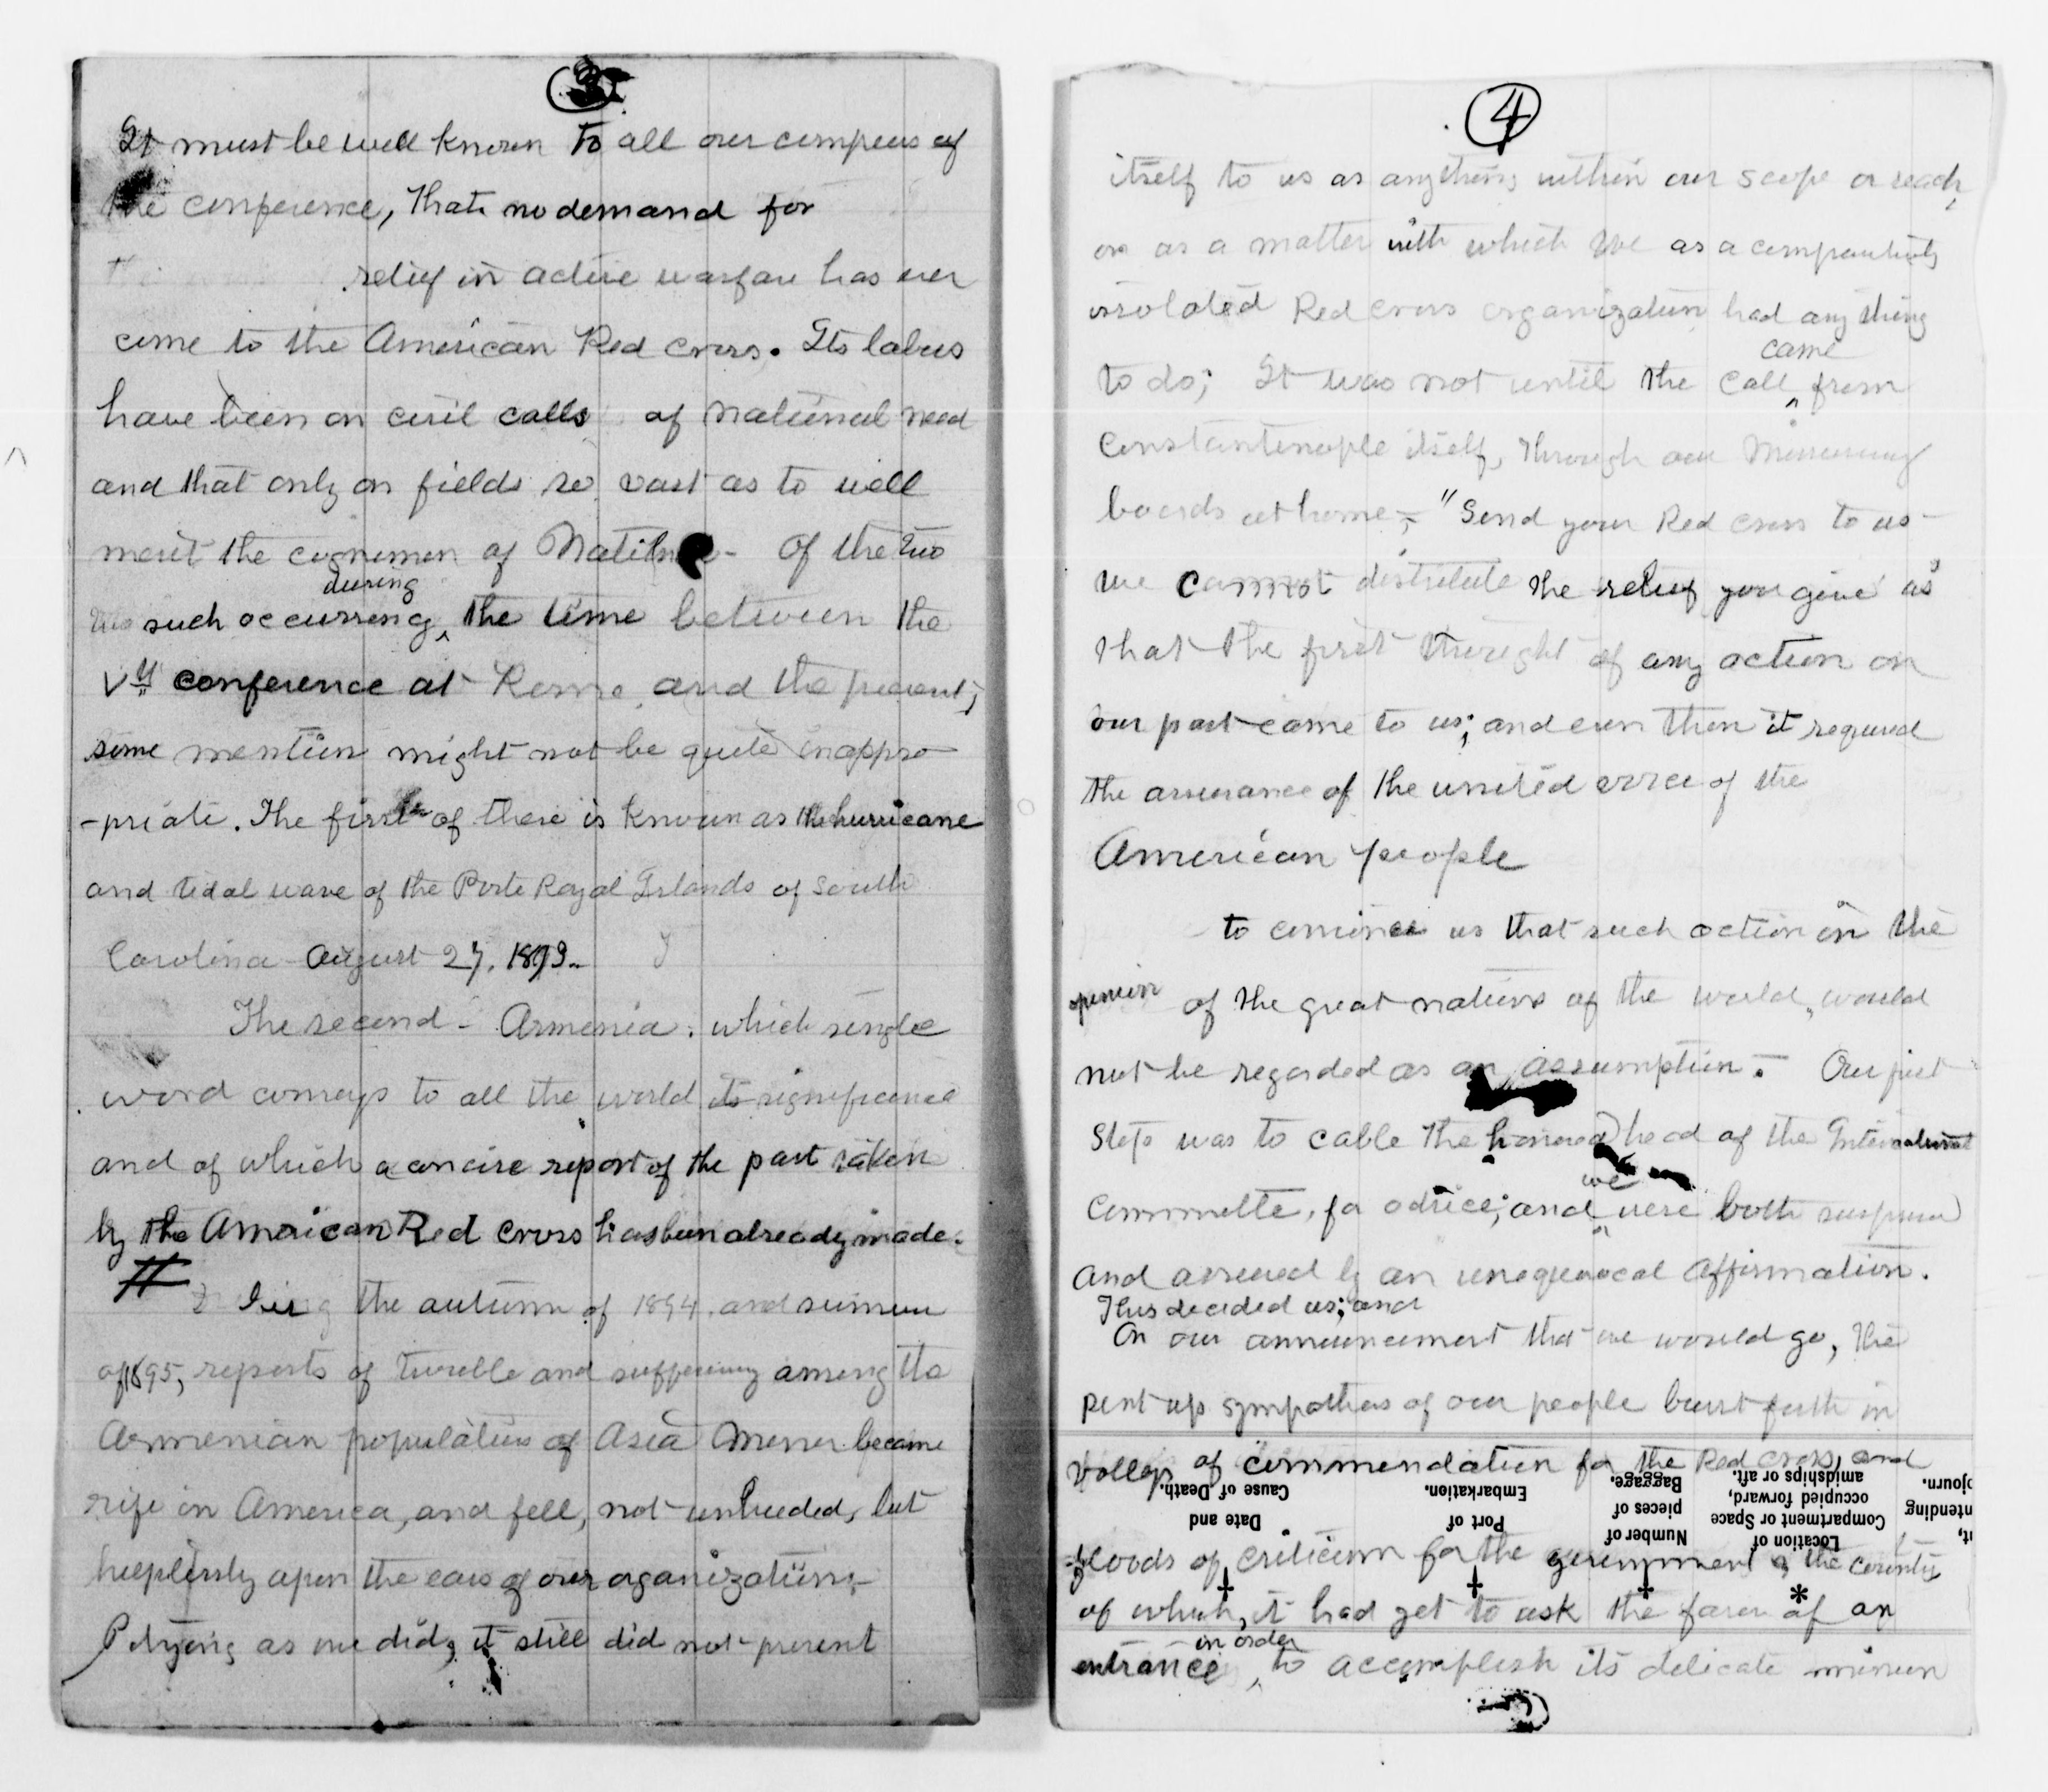 3
It must be well known to all our compeers of
the conference, that no demand for
relief in active warfare has ever
come to the American Red Cross. Its labors
have been on civil calls of national need
and that only on fields so vast as to well
merit the cognomen of National - Of the two
during
such occurring ^ the time between the
Vth conference at Rome, and the present,
some mention might not be quite inappro
-priate. The first of these is known as the hurricane
and tidal wave of the Porte Royal Islands of South
Carolina - August 27. 1893.
The second - Armenia. which single
word conveys to all the world its significance
and of which a concise report of the part taken
by the American Red Cross has been already made.
#
During the autumn of 1894 and summer
of 1895, reports of terrible and suffering among the
Armenian population of Asia Menor became
rife in America, and fell, not unheeded, but
helplessly upon the ears of our organization,-
Pitying as we did, it still did not present
4
itself to us as anything within our scope or reach,
or as a matter with which we as a comparatively
isolated Red Cross organization had any thing
came
to do; It was not until the call ^ from
Constantinople itself, through our Missionary
boards at home, - "Send your Red Cross to us -
we cannot distribute the relief you give us"
that the first thought of any action on
our part came to us; and even then it required
the assurance of the united voice of the
American people
to convince us that such action in the
opinion of the great nations of the world, would
not be regarded as an assumption. - Our first
Step was to cable the honored head of the International
we
Committe, for advice; and ^ were both surprised
and assured by an unequivocal affirmation.
This decided us; and
On our announcement that we would go, the
pent up sympathies of our people burst forth in
volleys of commendation for the Red Cross, and
Date and
Cause of Death.
Port of
Embarkation.
Number of
pieces of
Baggage.
Location of
Compartment or Space
occupied forward,
amidships or aft.
floods of criticism for the government of the country
of which, it had yet to ask the favor of an
† † † *
in order
entrance ^ to accomplish its delicate mission